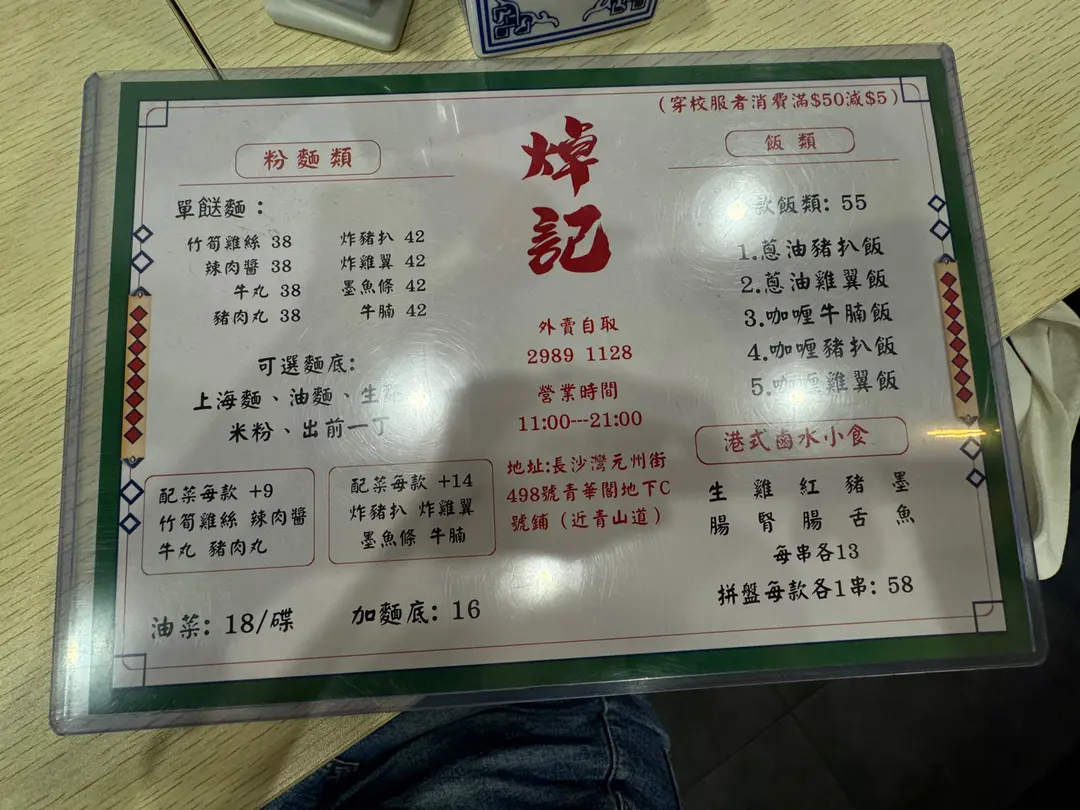 (穿校服者消費滿$50減$5)
粉麵類
單餸麵：
竹筍雞絲 38
辣肉醬 38
牛丸 38
豬肉丸 38
炸豬扒 42
炸雞翼 42
墨魚條 42
牛腩 42
可選麵底:
上海麵、油麵、生
米粉、出前一丁
配菜每款 +9
竹筍雞絲 辣肉醬
牛丸 豬肉丸
配菜每款 +14
炸豬扒 炸雞翼
墨魚條 牛腩
油菜: 18/碟
加麵底: 16
焯記
外賣自取
2989 1128
營業時間
11:00---21:00
地址:長沙灣元州街
498號青華閣地下C
號鋪（近青山道）
飯類
款飯類: 55
1.蔥油豬扒飯
2.蔥油雞翼飯
3.咖喱牛腩飯
4.咖喱豬扒飯
5.咖喱雞翼飯
港式鹵水小食
生腸 雞腎 紅腸 豬舌 墨魚
每串各13
拼盤每款各1串: 58